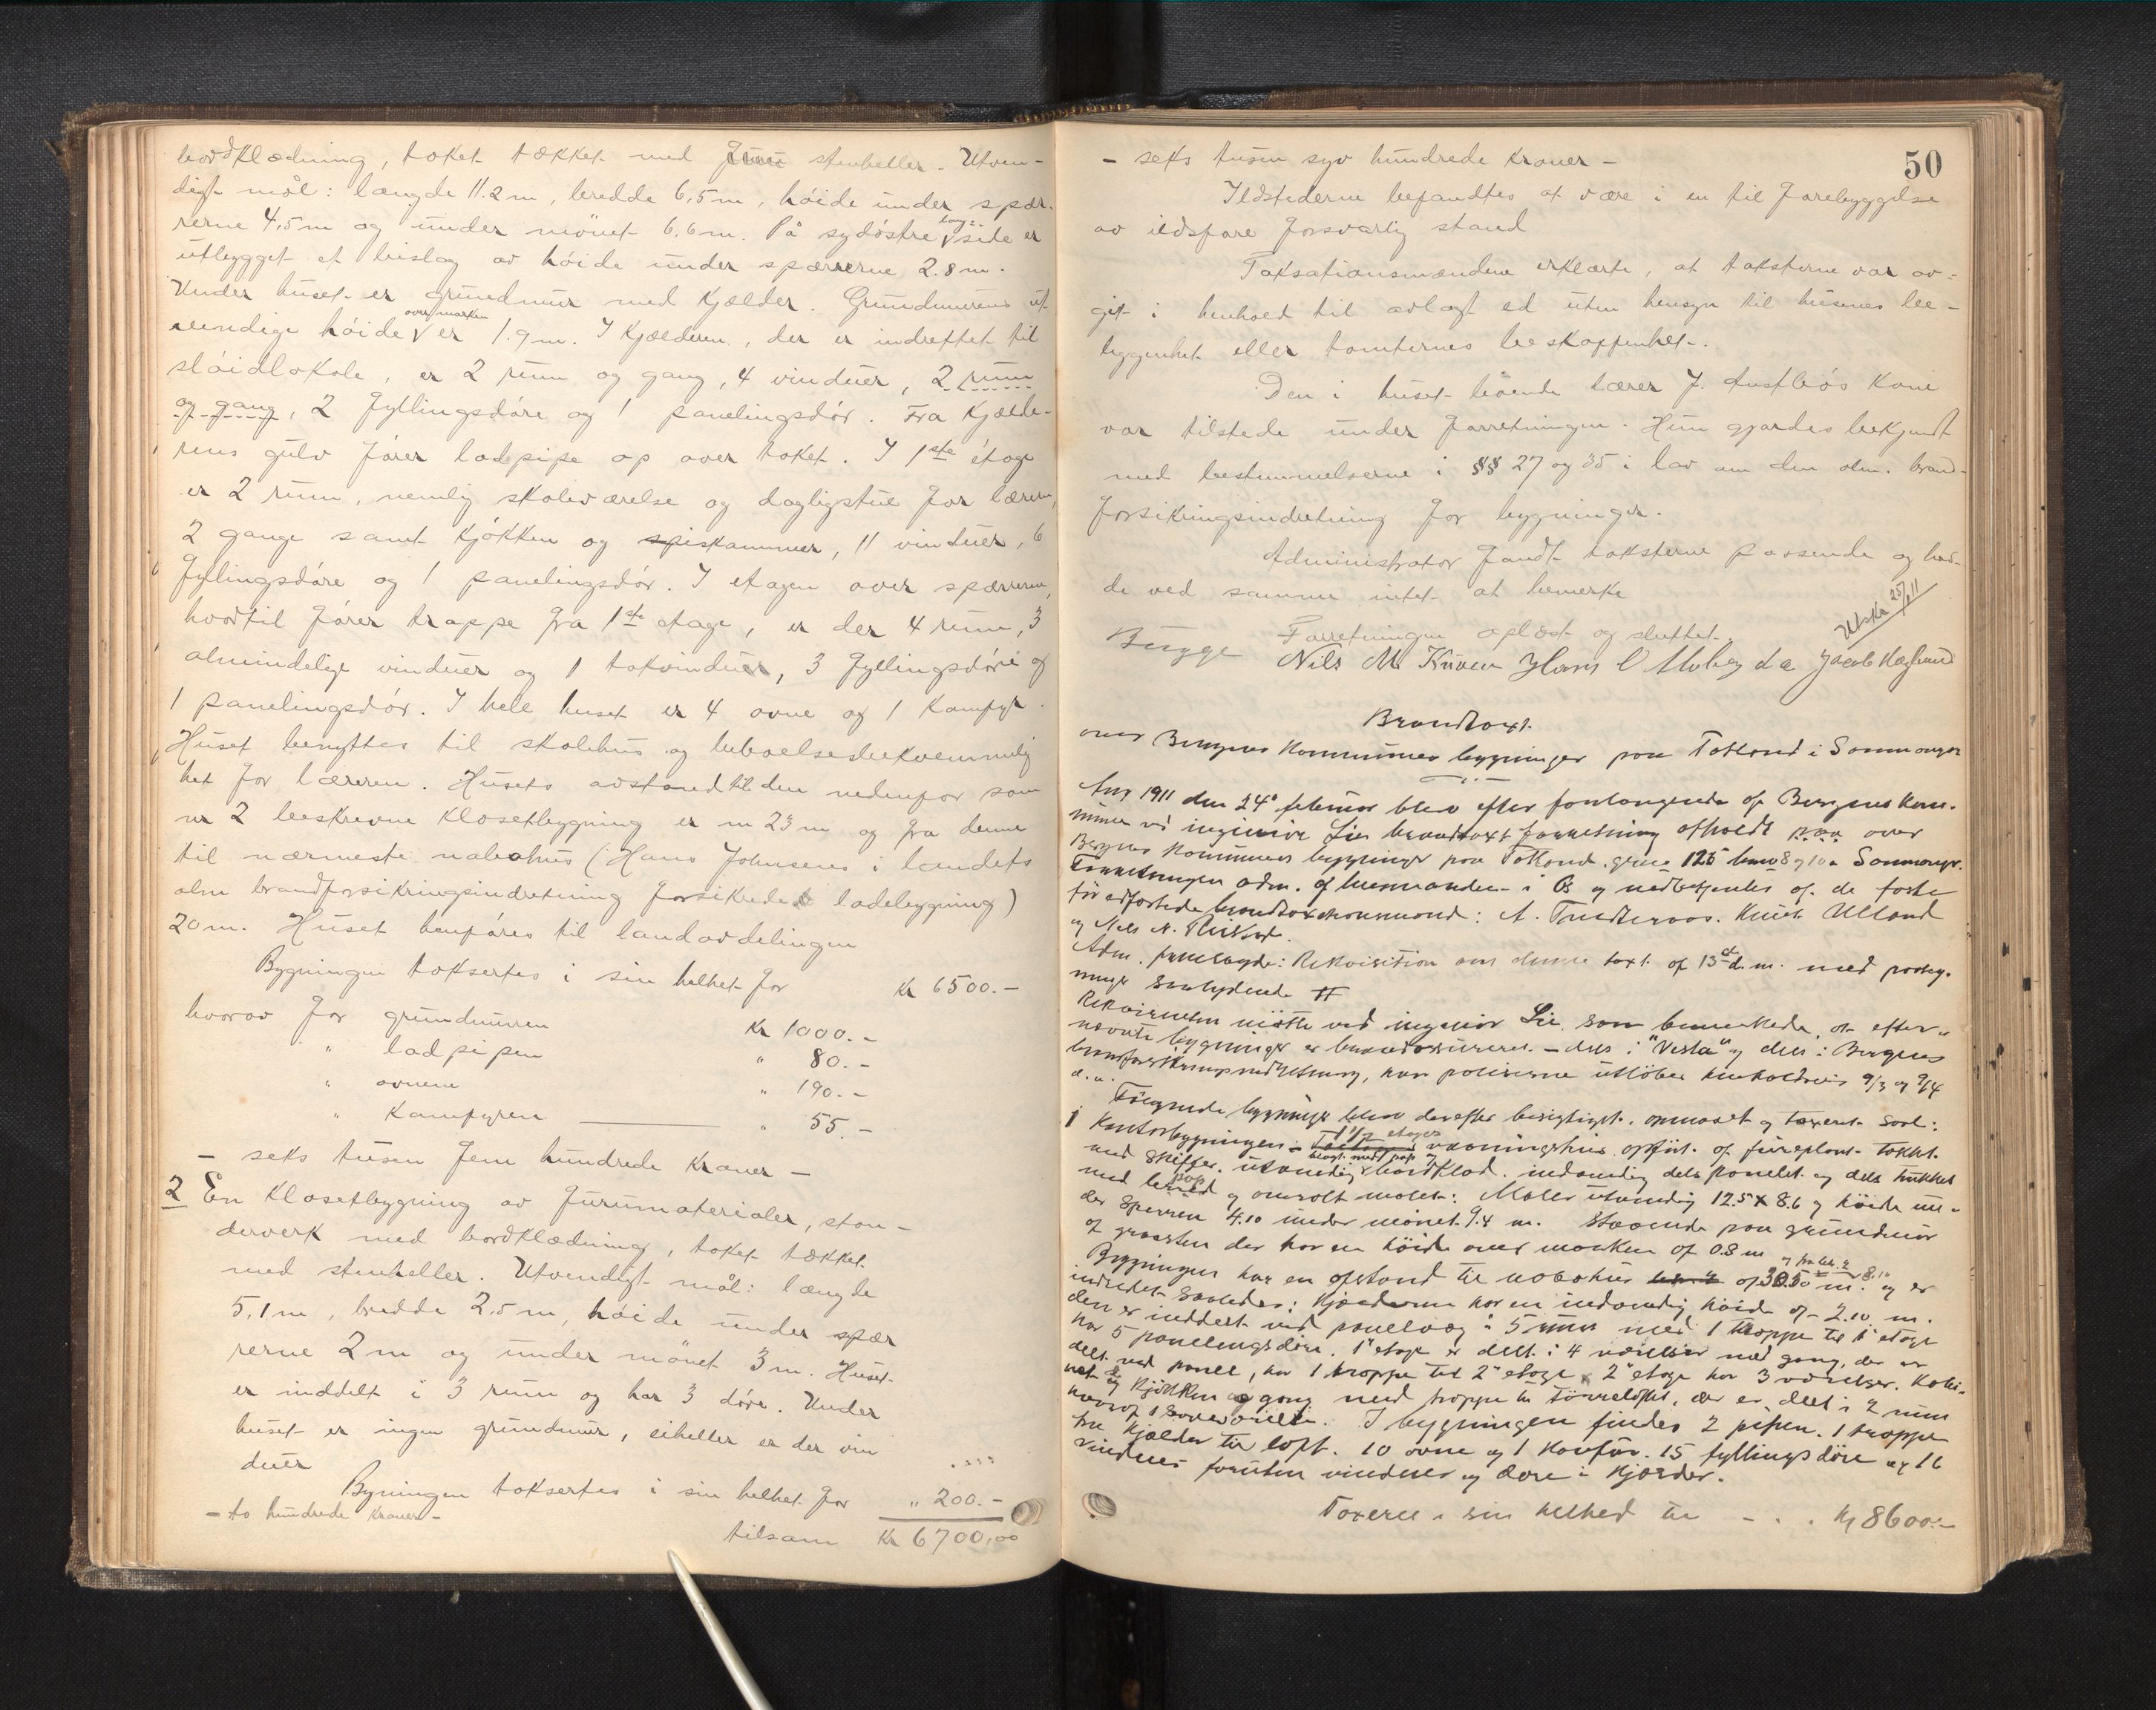 bordklædning, taket tækket med stenheller. Utven-
digt mål: længde 11.2 m, bredde 6,5 m, høide under spær-
rerne 4,5 m og under mønet 6,6 m. På sydøstre lang- side er
utbygget et bislag av høide under spærrerne 2.8 m.
Under huset er grundmur med kjælder. Grundmurens ut-
vendige høide over marken er 1.9 m. I kjælderen, der er indrettet til
sløidlokale, er 2 rum og gang, 4 vinduer, 2 rum
og gang, 2 fyllingsdøre og 1 panelingsdør. Fra kjælde-
rens gulv fører ladpipe op over taket. I 1ste etage
er 2 rum, nemlig skoleværelse og dagligstue for læreren,
2 gange samt kjøkken og spiskammer, 11 vinduer, 6
fyllingsdøre og 1 panelingsdør. I etagen over spærrerne,
hvortil fører trappe fra 1ste etage, er der 4 rum, 3
almindelige vinduer og 1 takvindu, 3 fyllingsdøre og
1 panelingsdør. I hele huset er 4 ovne og 1 komfyr.
Huset benyttes til skolehus og beboelsesbekvemmelig
het for læreren. Husets avstand til den nedenfor som
nr 2 beskrevne klosetbygning er 23 m og fra denne
til nærmeste nabohus (Hans Johnsens i landets
alm brandforsikringsindretning forsikrede ladebygning)
20 m. Huset henføres til landavdelingen
Bygningen taksertes i sin helhet for kr 6500.-
hvorav for grundmuren kr 1000.-
" ladpipen " 80.-
" ovnene " 190.-
" komfyren " 55.-
- seks tusen fem hundrede kroner -
2 En klosetbygning av furumaterialer, stan-
derverk med bordklædning, taket tækket
med stenheller. Utvendigt mål: længde
5,1 m, bredde 2,5 m, høide under spær
rerne 2 m og under mønet 3 m. Huset
er inddelt i 3 rum og har 3 døre. Under
huset er ingen grundmur, eiheller er der vin
duer
Bygningen taksertes i sin helhet for " 200.-
- to hundrede kroner -
tilsam kr 6700,00
50
- seks tusen syv hundrede kroner -
Ildstederne befandtes at være i en til forebyggelse
av ildsfare forsvarlig stand
Taksationsmændene erklærte, at taksterne var av-
git i henhold til avlagt ed uten hensyn til husenes be-
liggenhet eller tomternes beskaffenhet.
Den i huset boende lærer J. kone
var tilstede under forretningen. Hun gjordes bekjendt
med bestemmelserne i §§ 27 og 35 i lov om den alm. brand-
forsikringsindretning for bygninger.
Administrator fandt taksterne passende og had-
de ved samme intet at bemerke
Utskr 25/ 11
Forretningen oplæst og sluttet.
Bugge Nils M Hans O Jacob
Brandtaxt.
over Bergens Kommunes bygninger paa Totland i Sammanger
Aar 1911 den 24de februar blev efter forlangende af Bergens Kom-
mune ved ingeniør Lie brandtaxt forretning afholdt over
Bergens Kommunes bygninger paa Totland, grno 125 brno 8 og 10 Sammanger.
Forretningen adm. af lensmanden i Os og medbetjentes af de faste
før edfæstede brandtaxtmænd: A. Knut Ulland
og Nils N.
Adm. fremlagde: Rekvisition om denne taxt af 13de d.m. med paateg-
ninger saalydende #
Rekvirenten mötte ved ingeniør Lie, som bemerkede at efter-
nævnte bygninger er brandassureret - dels i "Vesta" og dels i Bergens
brandforsikringsindretning, hvor poliserne utløber henholdsvis 9/3 og 9/4
d.a.
Følgende bygninger blev derefter besigtiget, opmaalt og taxeret saal:
1 Kontorbygningen: 1 1/2 etages vaaningshus opført af furuplank. Tækket
med skiffer. utvendig belagt med pap og bordklæd. indvendig dels panelet og dels trukket
med pap og omsolt malet. Maaler utvendig 12.5 x 8.6 og høide un-
der sperren 4.10 under mønet 9.4 m. Staaende paa grundmur
af graasten der har en høide over marken af 0.8 m
Bygningen har en afstand til nabohus af 30.50 m. og fra bek. 2 8.10 og er
indredet saaledes: Kjælderen har en indvendig høide af 2.10 m.
den er inddelt ved panelvæg i 5 rum med 1 trappe til 1' etage
har 5 panelingsdøre. 1' etage er delt i 4 værelser med gang, der er
delt ved panel, har 1 trappe til 2' etage. 2' etage har 3 værelser. Kabi-
net og kjøkken og gang med trappe til tørreloftet, der er delt i 2 rum
hvoraf 1 soveværelse. I bygningen findes 2 piper. 1 trappe
fra kjælder til loft. 10 ovne og 1 Komfür. 15 fyllingsdøre og 16
vinduer foruten vinduer og døre i kjælder.
Taxeret i sin helhed til - . . kr 8600.-